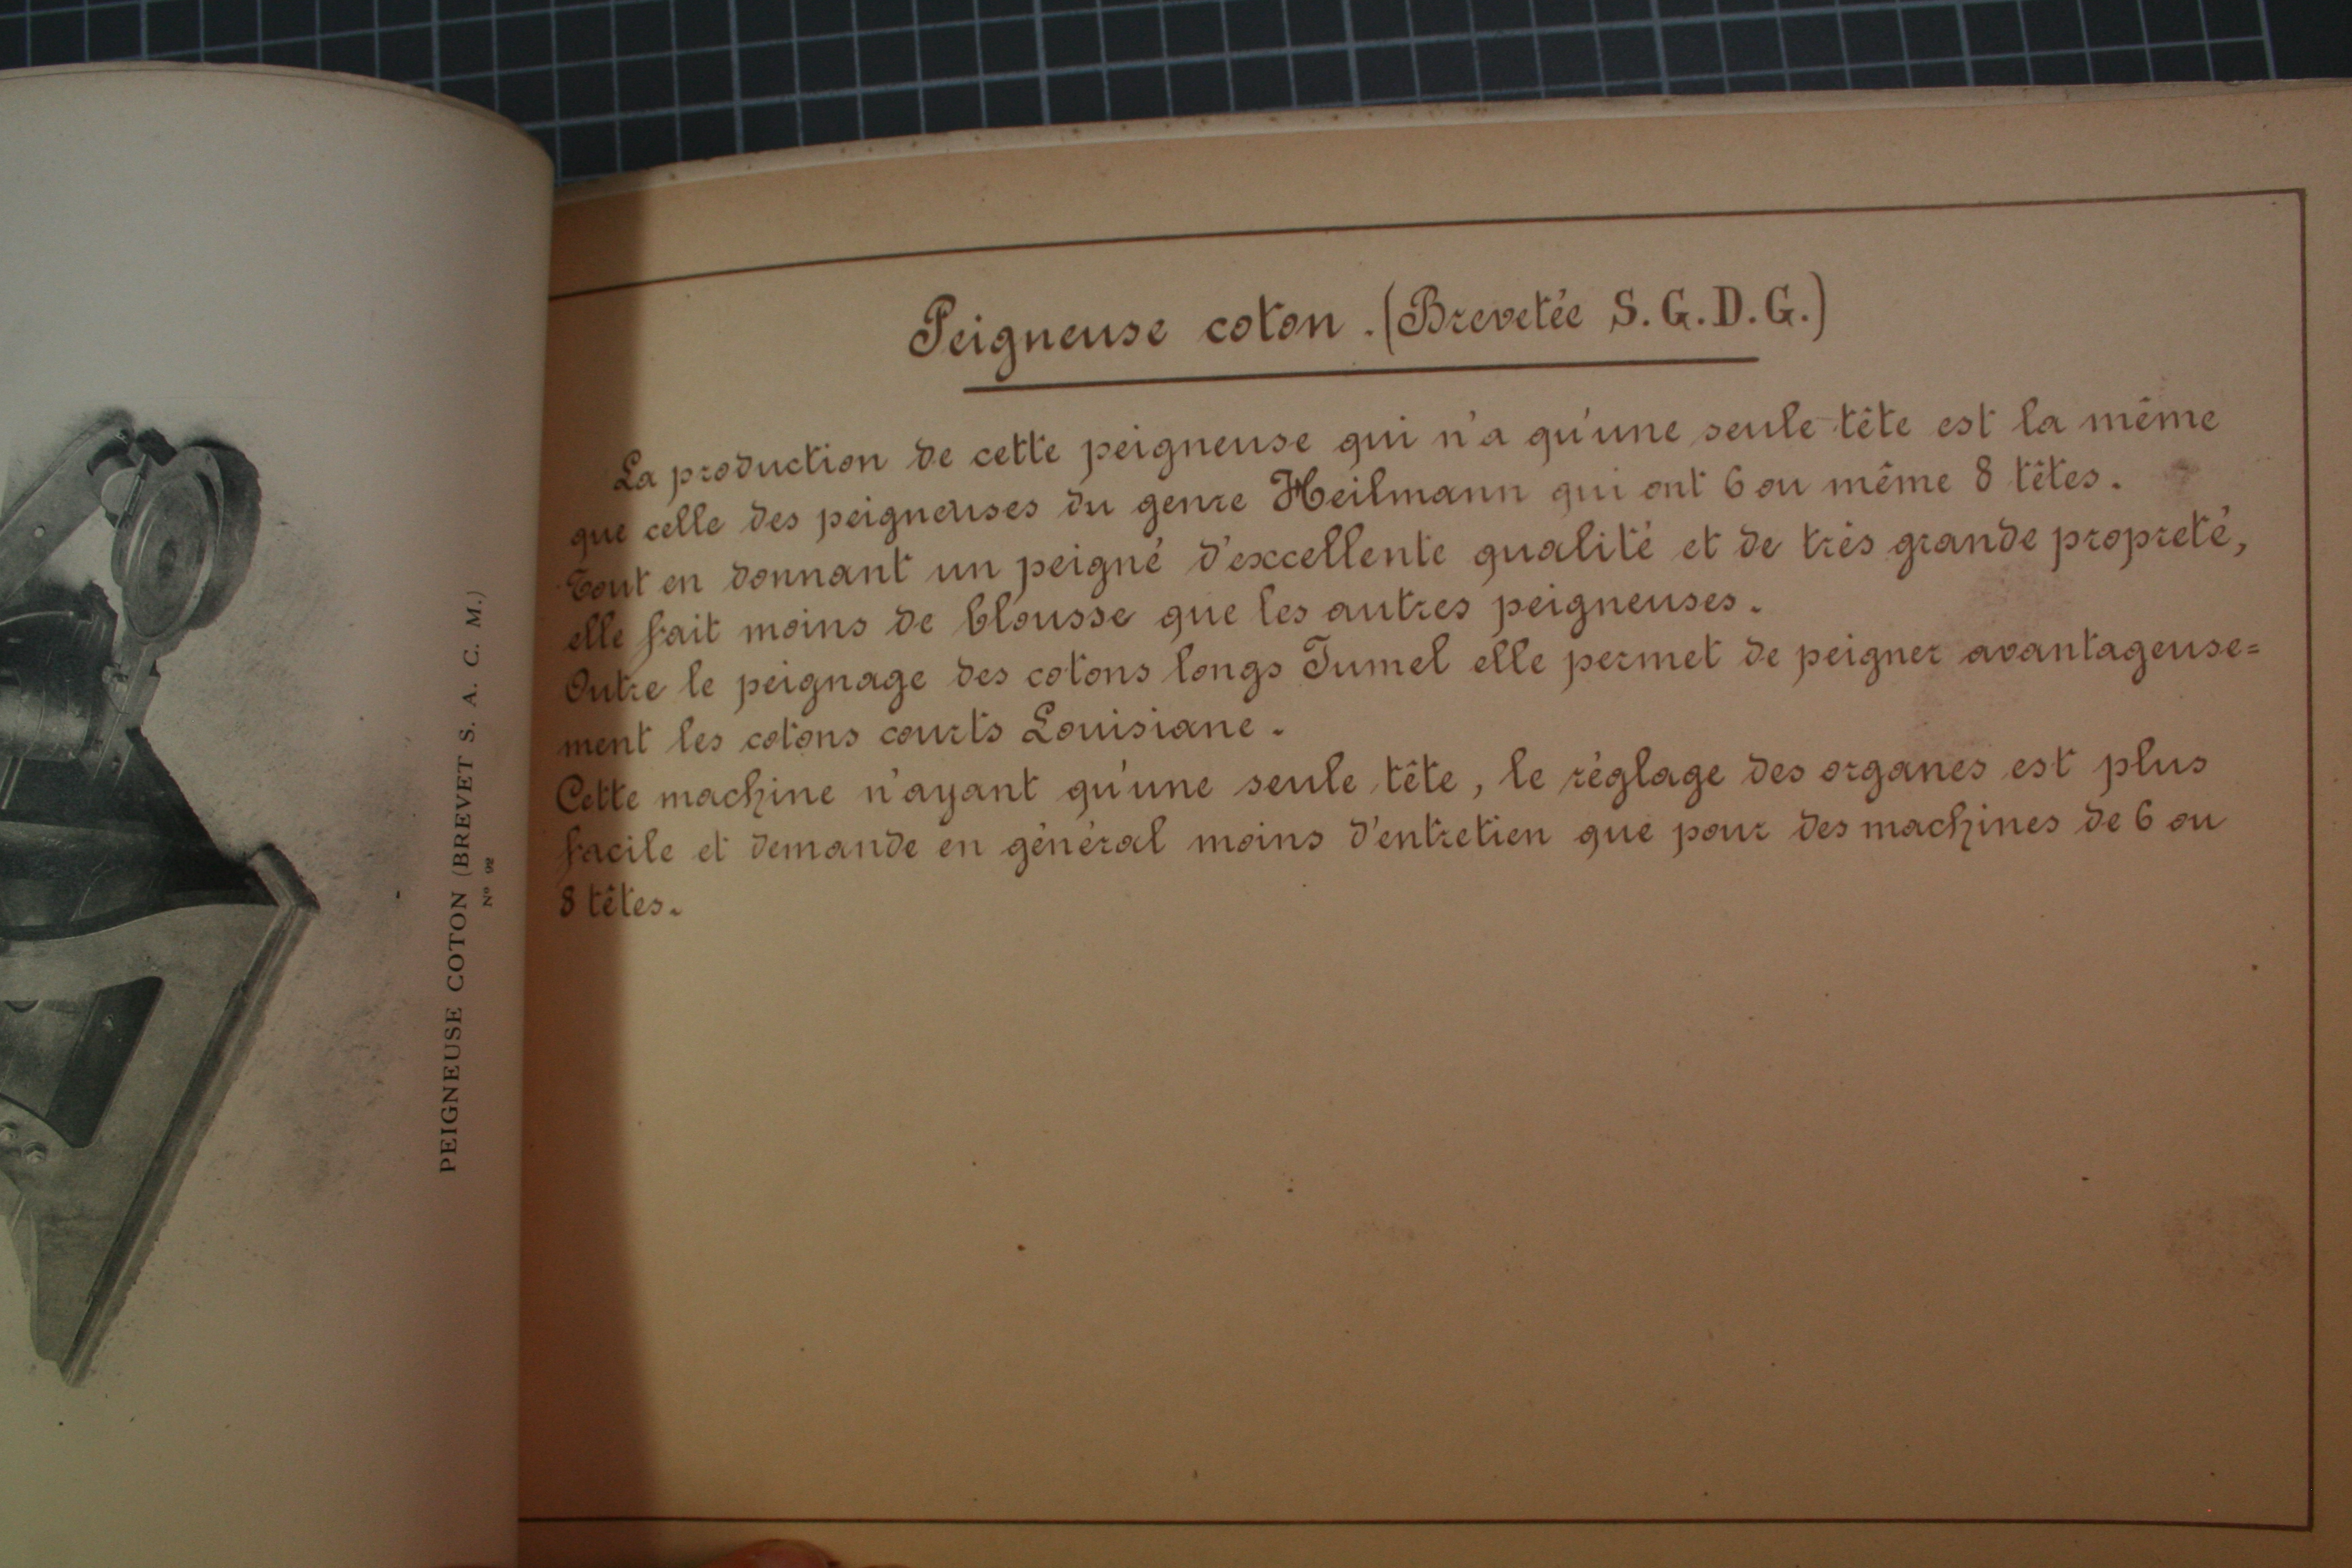 PEIGNEUSE COTON (BREVET S. A. C. M.)
N° 92
Peigneuse coton. (Brevetée S.G.D.G.)
La production de cette peigneuse qui n'a qu'une seule tête est la même
que celle des peigneuses du genre Heilmann qui ont 6 ou même 8 têtes.
Tout en donnant un peigné d'excellente qualité et de très grande propreté,
elle fait moins de blousse que les autres peigneuses.
Outre le peignage des cotons longs Jumel elle permet de peigner avantageuse=
ment les cotons courts Louisiane.
Cette machine n'ayant qu'une seule tête, le réglage des organes est plus
facile et demande en général moins d'entretien que pour des machines de 6 ou
8 têtes.